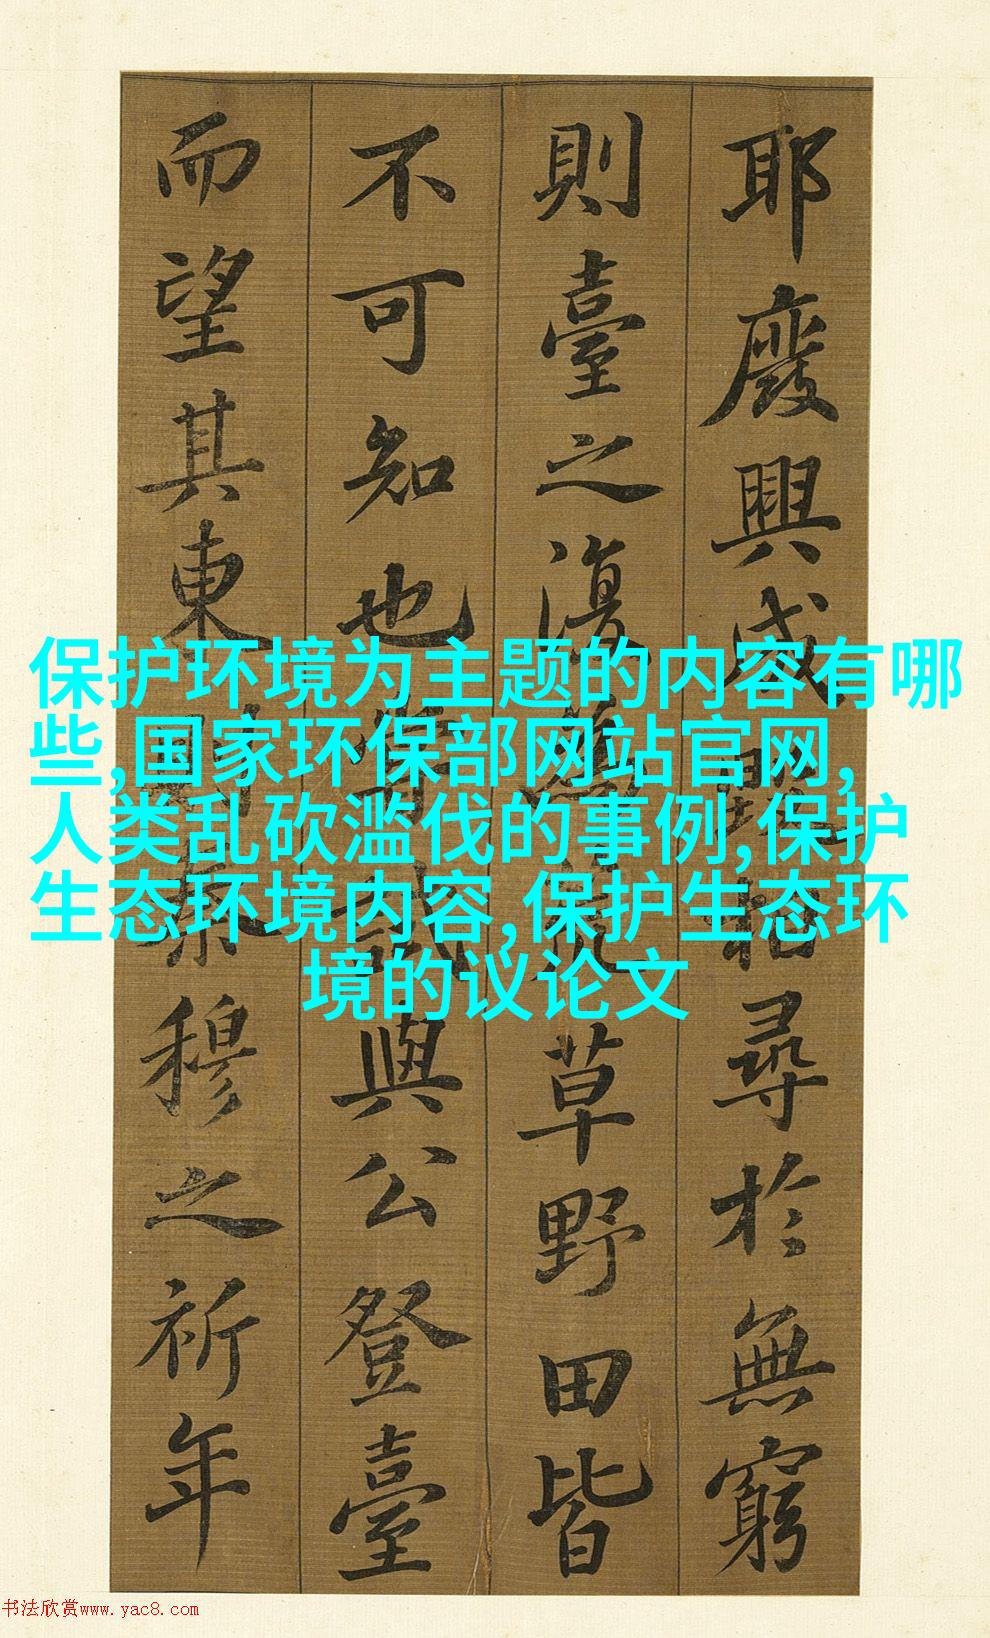 耶廢興成毀相尋於無窮
則臺之復為荒草野田皆
不可知也嘗試與公登臺
而望其東則秦穆之祈年
保护环境为主题的内容有哪
些,国家环保部网站官网,
人类乱砍滥伐的事例,保护
生态环境内容,保护生态环
境的议论文
书法欣赏www.yac8.com